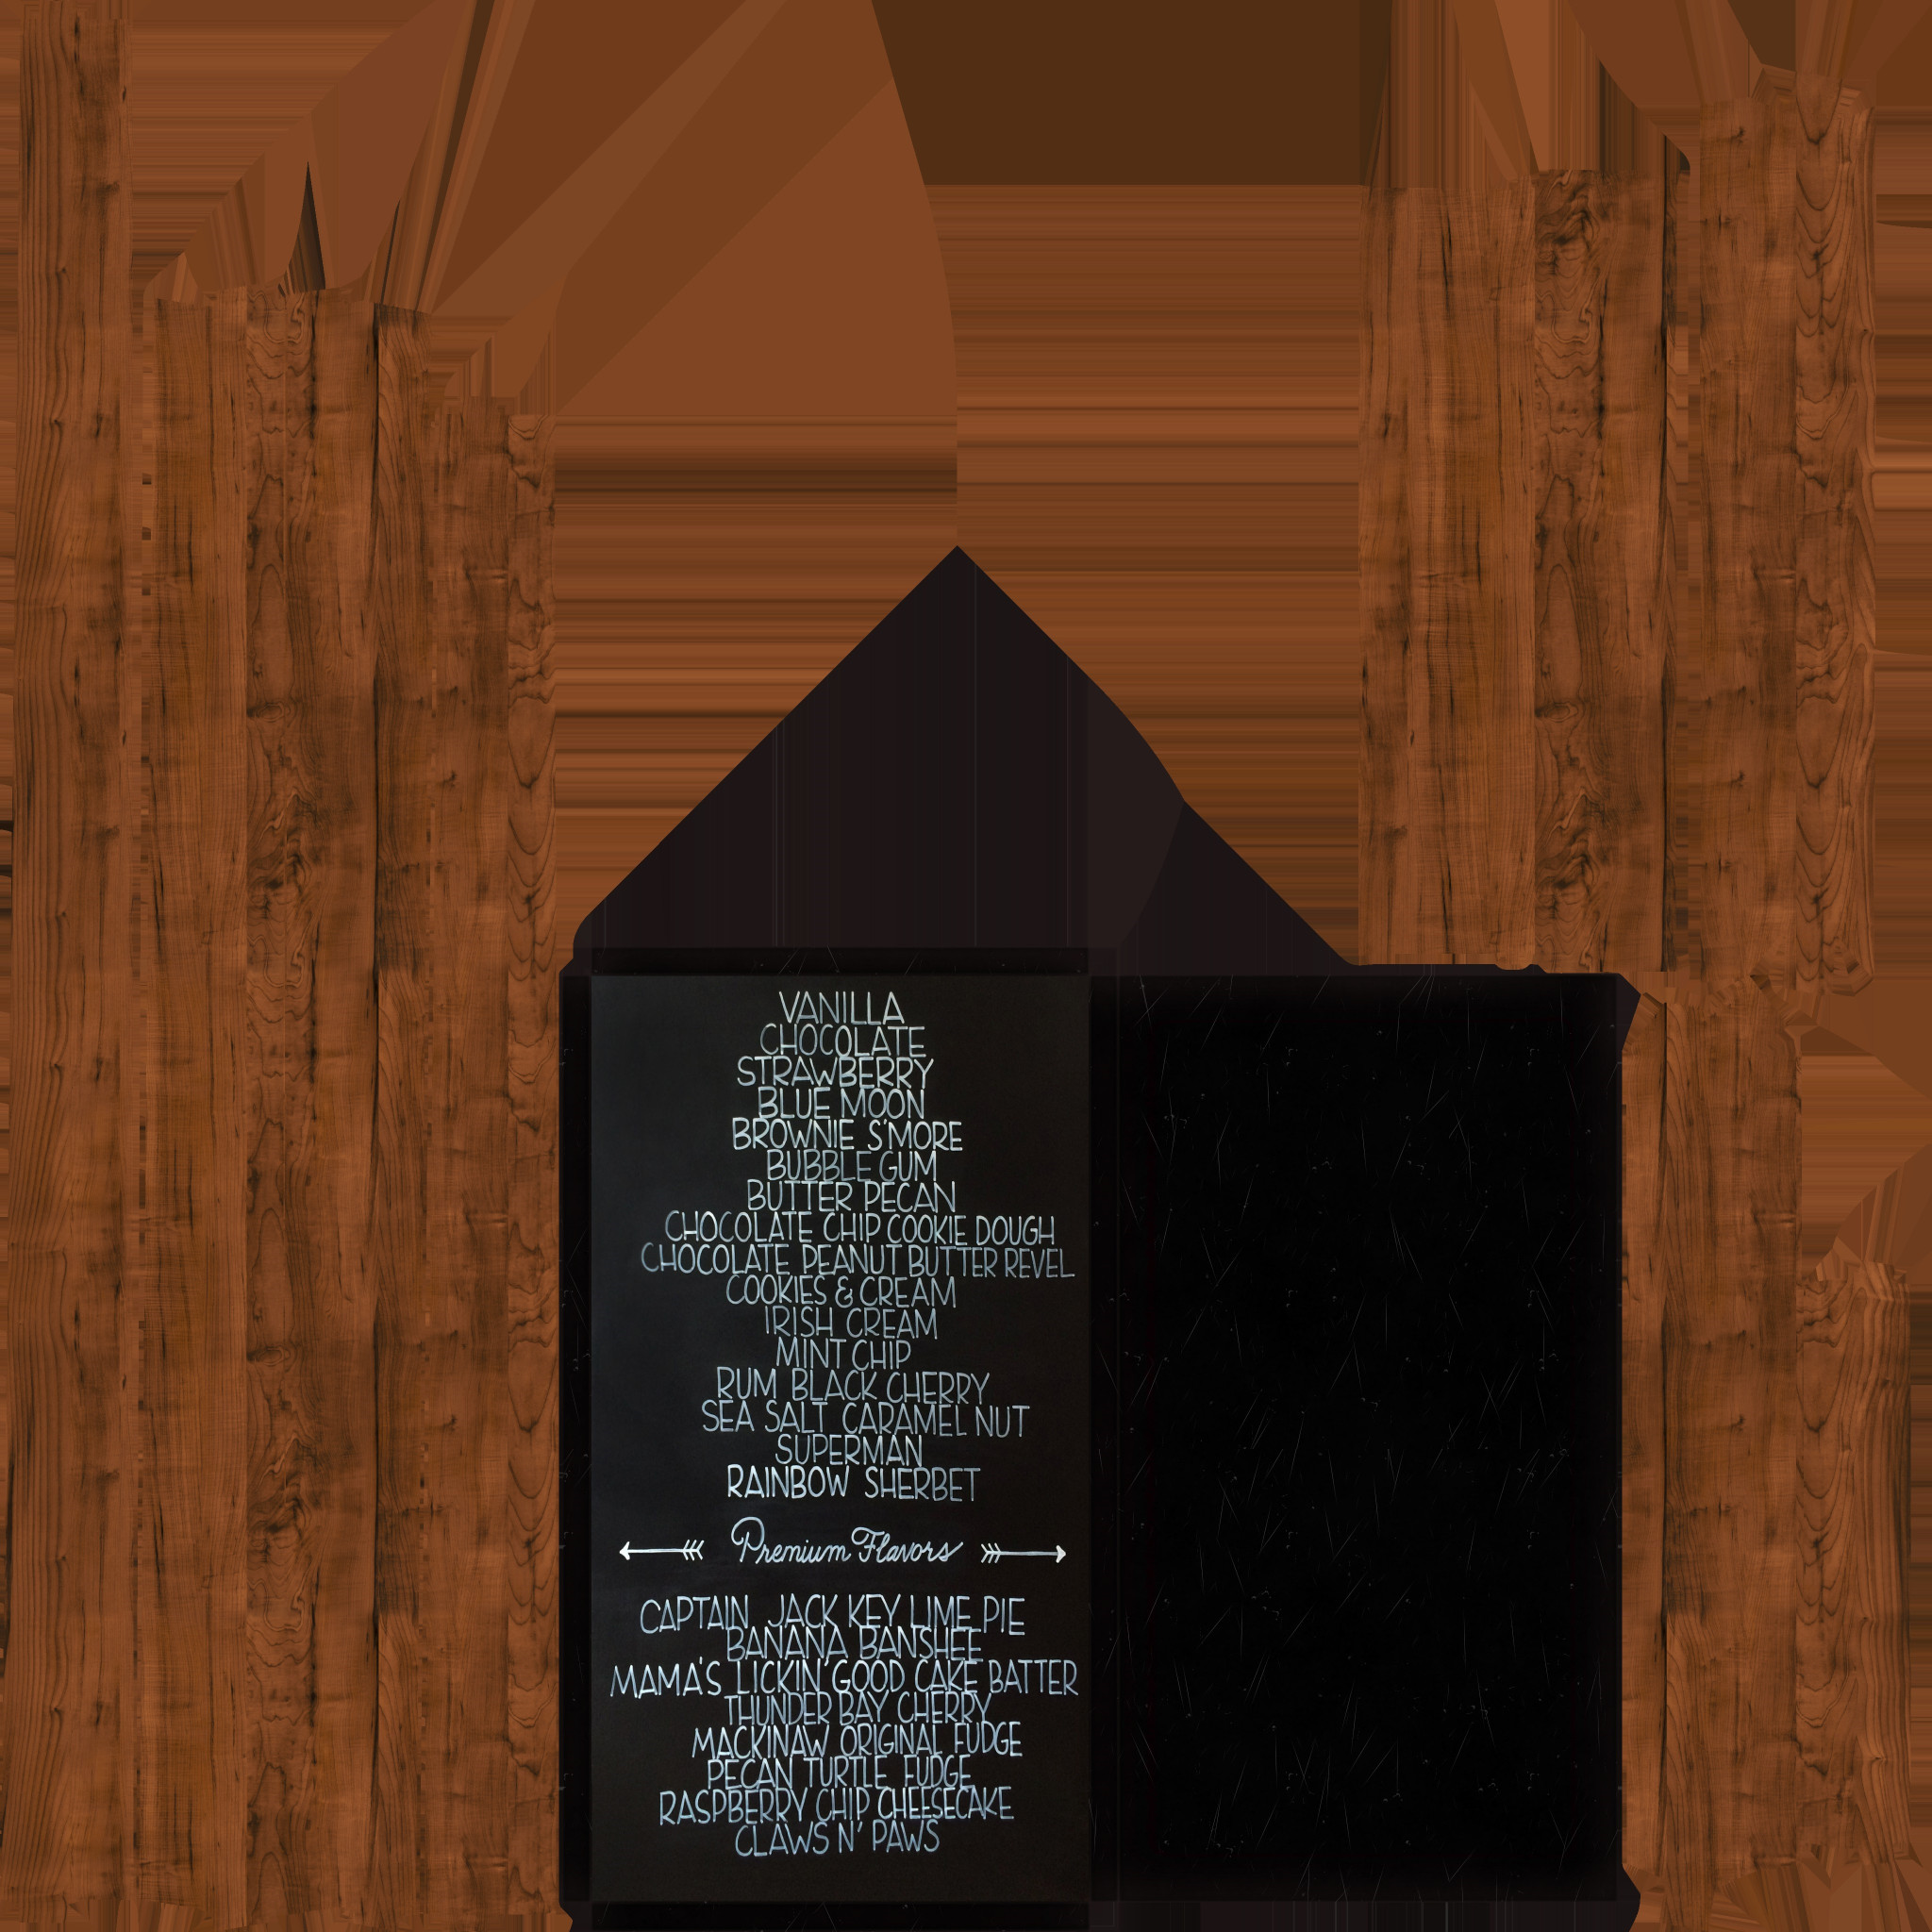 VANILLA
CHOCOLATE
STRAWBERRY
BLUE MOON
BROWNIE S'MORE
BUBBLE GUM
BUTTER PECAN
CHOCOLATE CHIP COOKIE DOUGH
CHOCOLATE PEANUT BUTTER REVEL
COOKIES & CREAM
IRISH CREAM
MINT CHIP
RUM BLACK CHERRY
SEA SALT CARAMEL NUT
SUPERMAN
RAINBOW SHERBET
Premium Flavors
CAPTAIN JACK KEY LIME PIE
BANANA BANSHEE
MAMA'S LICKIN' GOOD CAKE BATTER
THUNDER BAY CHERRY
MACKINAW ORIGINAL FUDGE
PECAN TURTLE FUDGE
RASPBERRY CHIP CHEESECAKE
CLAWS N' PAWS